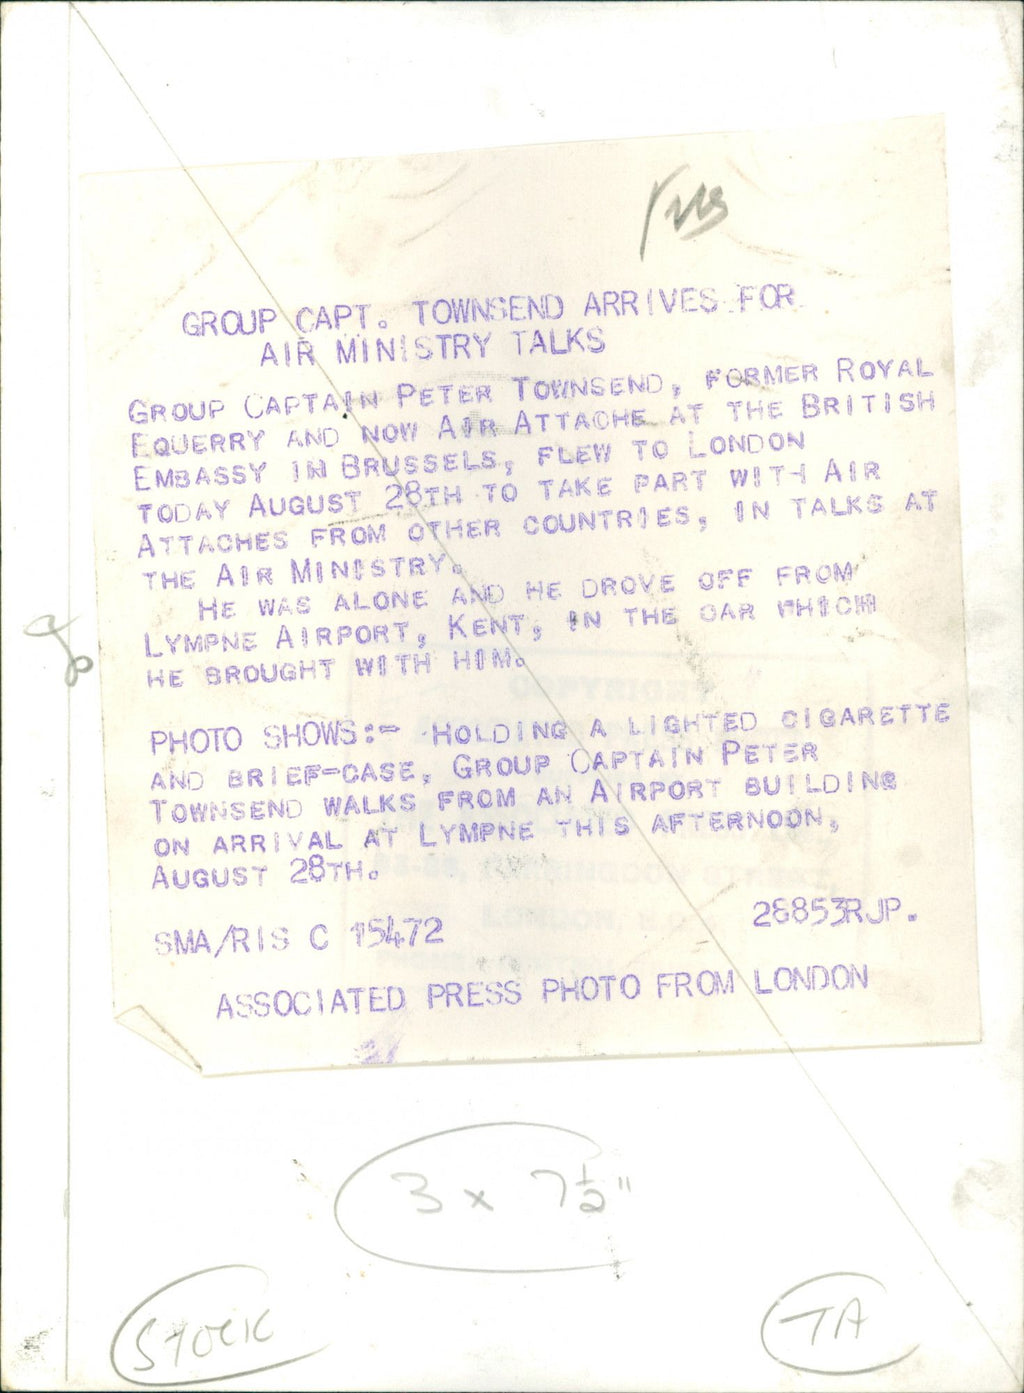 GROUP CAPT. TOWNSEND ARRIVES FOR
AIR MINISTRY TALKS
GROUP CAPTAIN PETER TOWNSEND, FORMER ROYAL
EQUERRY AND NOW AIR ATTACHE AT THE BRITISH
EMBASSY IN BRUSSELS, FLEW TO LONDON
TODAY AUGUST 28TH TO TAKE PART WITH AIR
ATTACHES FROM OTHER COUNTRIES, IN TALKS AT
THE AIR MINISTRY.
HE WAS ALONE AND HE DROVE OFF FROM
LYMPNE AIRPORT, KENT, IN THE CAR WHICH
HE BROUGHT WITH HIM.
PHOTO SHOWS:- HOLDING A LIGHTED CIGARETTE
AND BRIEF-CASE, GROUP CAPTAIN PETER
TOWNSEND WALKS FROM AN AIRPORT BUILDING
ON ARRIVAL AT LYMPNE THIS AFTERNOON,
AUGUST 28TH.
SMA/RIS C 15472 28853RJP.
ASSOCIATED PRESS PHOTO FROM LONDON
3 x 7½"
STOCK
TA